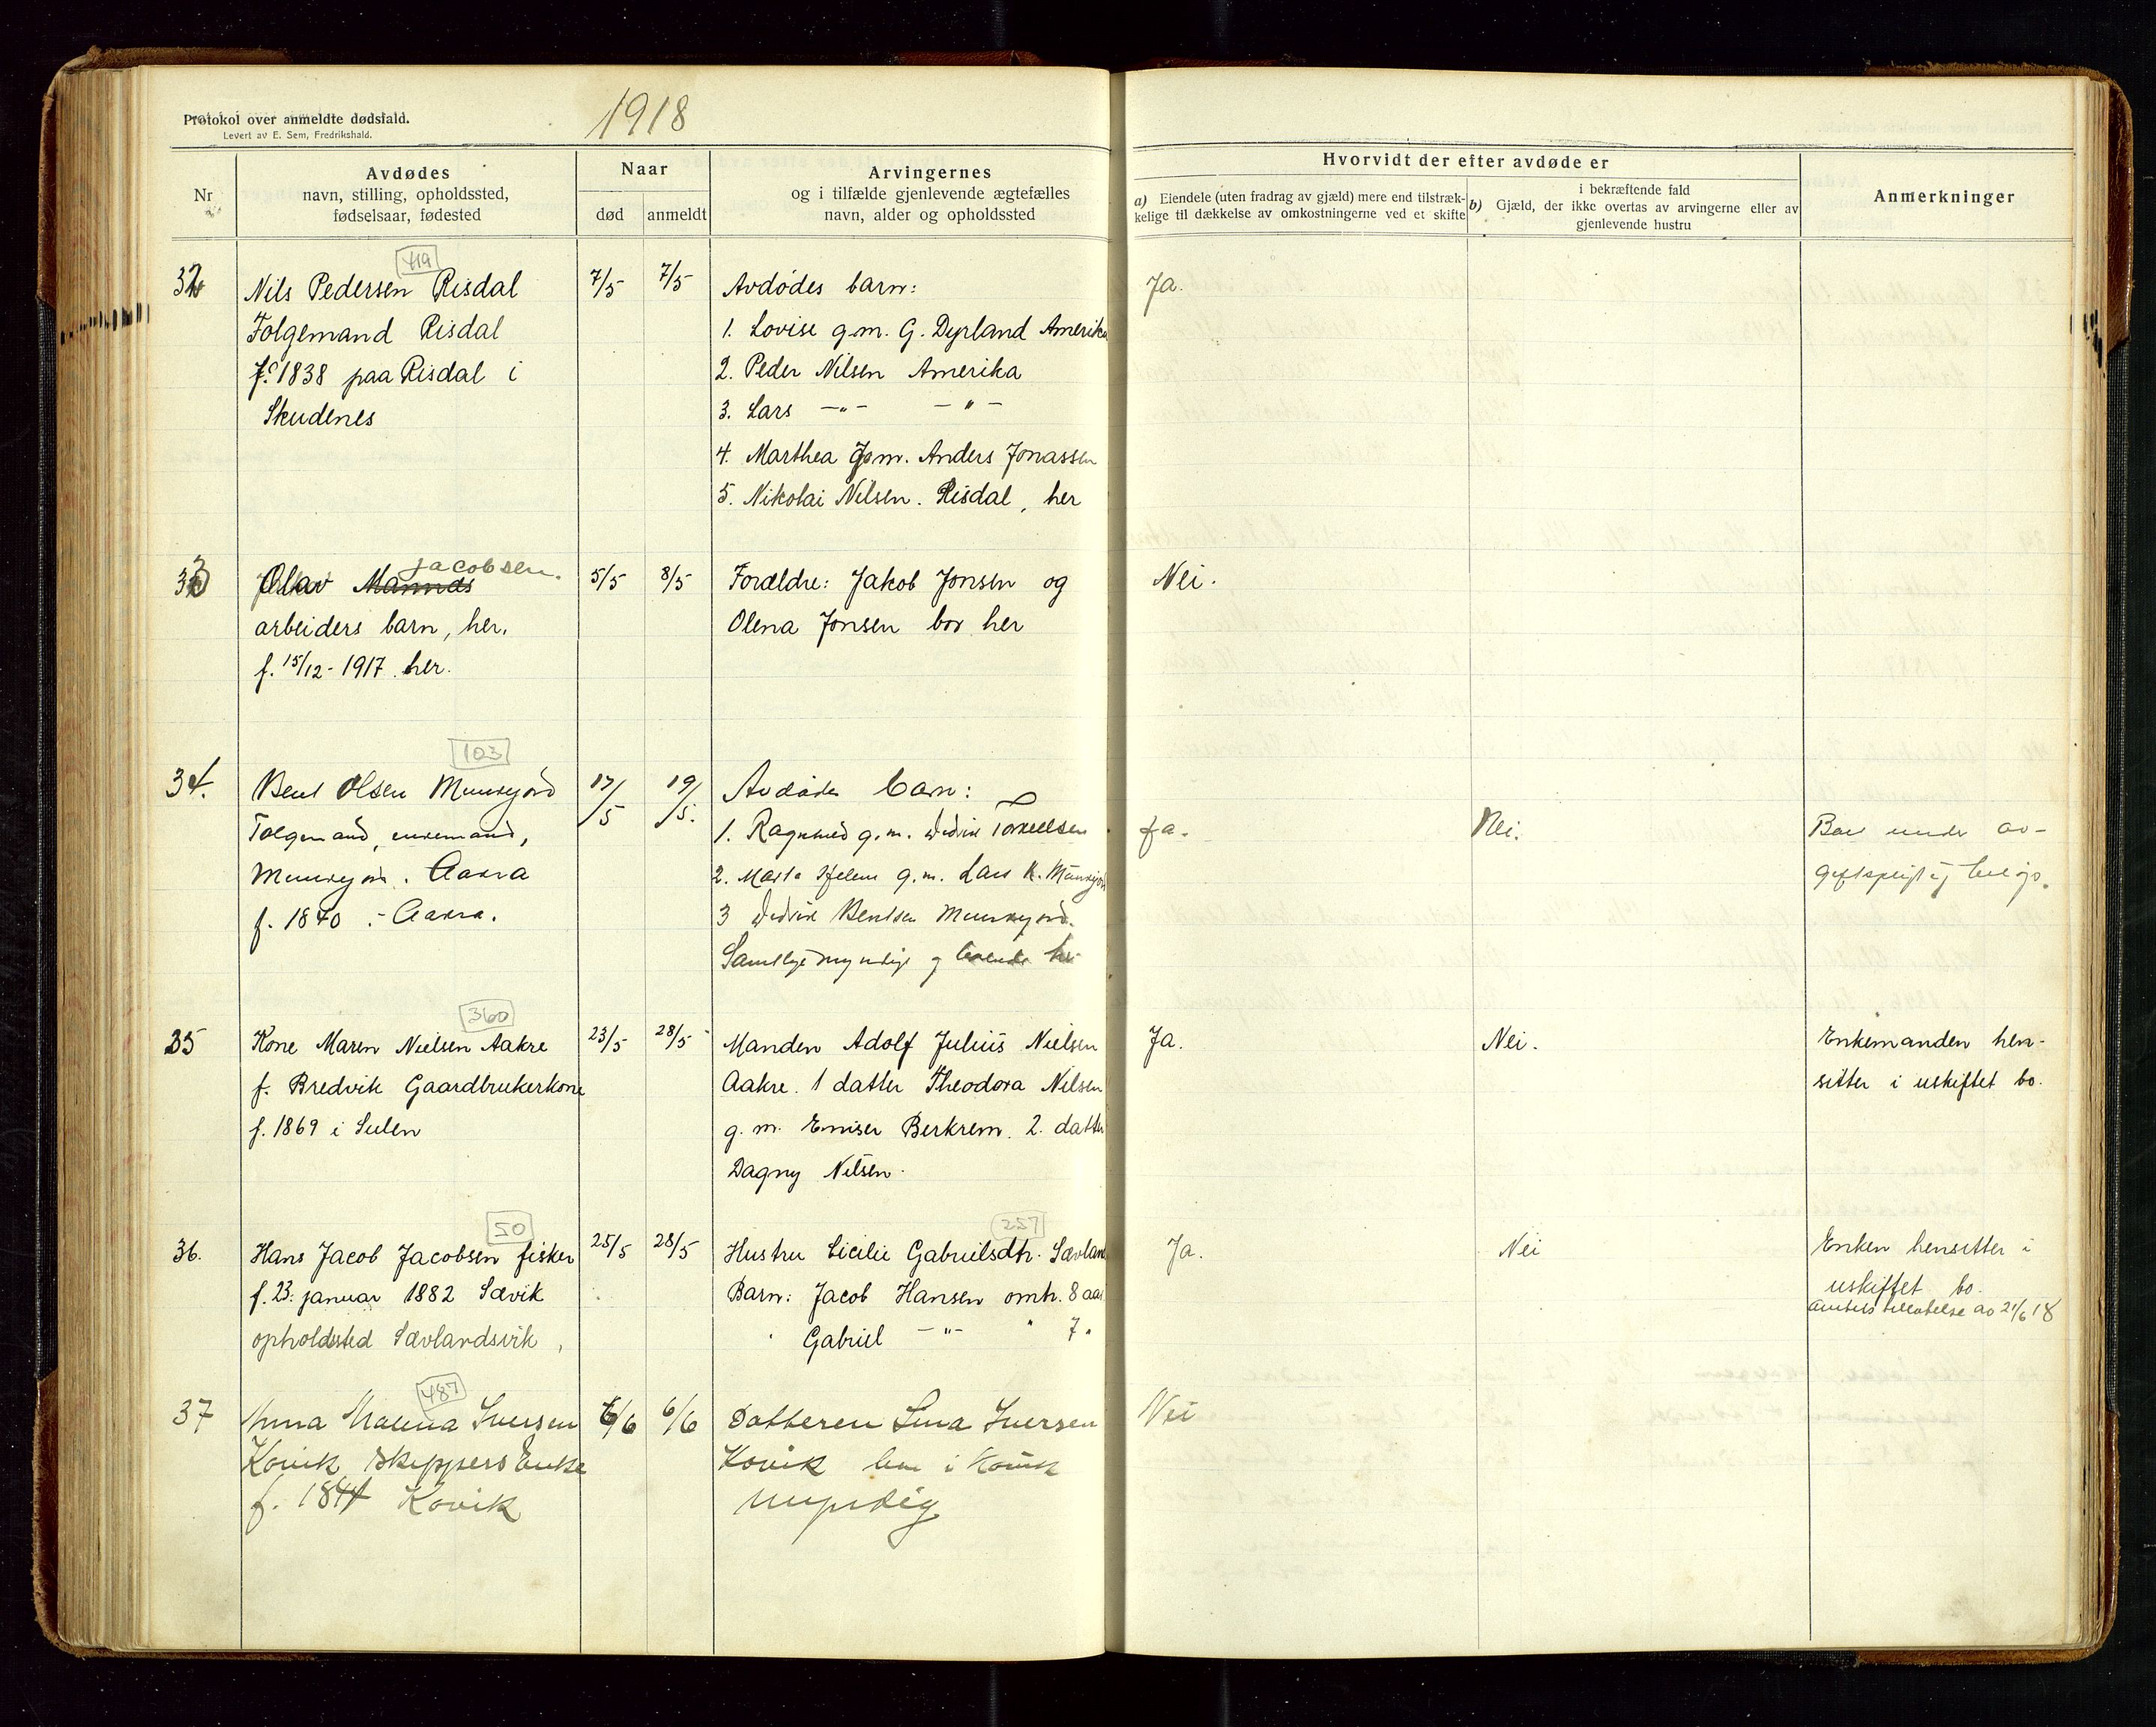 1918
Protokol over anmeldte dødsfald.
Levert av E. Sem, Fredrikshald.
Nr
Avdødes
navn, stilling, opholdssted,
fødselsaar, fødested
Naar
død
anmeldt
Arvingernes
og i tilfælde gjenlevende ægtefælles
navn, alder og opholdssted
Hvorvidt der efter avdøde er
a) Eiendele (uten fradrag av gjæld) mere end tilstræk-
kelige til dækkelse av omkostningerne ved et skifte
i bekræftende fald
b) Gjæld, der ikke overtas av arvingerne eller av
gjenlevende hustru
Anmerkninger
419
32 Nils Pedersen Risdal 7/5 7/5 Avdødes barn: Ja.
Folgemand Risdal 1. Lovise g.m. G. Dyrland Amerika
f. 1838 paa Risdal i 2. Peder Nilsen Amerika
Skudenes 3. Lars -"- -"-
4. Marthea g.m. Anders Jonassen
5. Nikolai Nilsen. Risdal, her
Jacobsen.
33 Olav Mannes 5/5 8/5 Forældre: Jakob Jonsen og Nei.
arbeiders barn, her. Olena Jonsen bor her
f. 15/12-1917 her.
103
34. Bent Olsen Munkejord 17/5 19/5. Avdødes barn:
Folgemand, enkemand, 1. Ragnhild g.m. Torkelsen Ja. Nei. Boet under av-
Munkejord. Aakra 2. Marta Helene g.m. Lars K. Munkejord giftspligtig beløp.
f. 1840 - Aakra. 3 Bentsen Munkejord.
Samtlige myndige og boende her
360
35 Kone Maren Nielsen Aakre 23/5 28/5 Manden Adolf Julius Nielsen Ja. Nei. Enkemanden hen-
f. Bredvik Gaardbrukerkone Aakre. 1 datter Theodora Nilsen sitter i uskiftet bo.
f. 1869 i Sulen g.m. Emiser Berkrem. 2. datter
Dagny Nilsen.
50 257
36. Hans Jacob Jacobsen fisker 25/5 28/5 Hustru Cicilie Gabrielsdtr. Sævland Ja. Nei Enken hensitter i
f. 23. januar 1882 Sævik Barn: Jacob Hansen omtr. 8 aar uskiftet bo.
opholdsted Sævlandsvik, Gabriel -"- " 7 " Amtets tilladelse av 21/6 18
487
37 Anna Malena Iversen 6/6 6/6 Datteren Lina Iversen Nei
Kovik Skippers Enke Kovik bor i Kovik
f. 1844 Kovik myndig